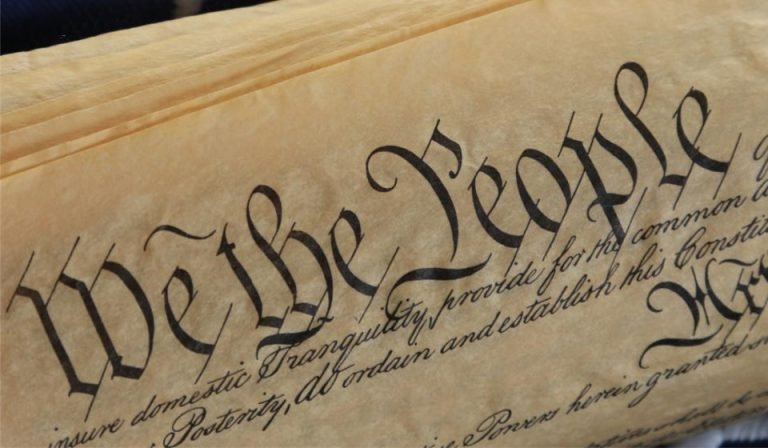 We the People
insure domestic Tranquility, provide for the common
Posterity, do ordain and establish this Constit
Powers herein granted